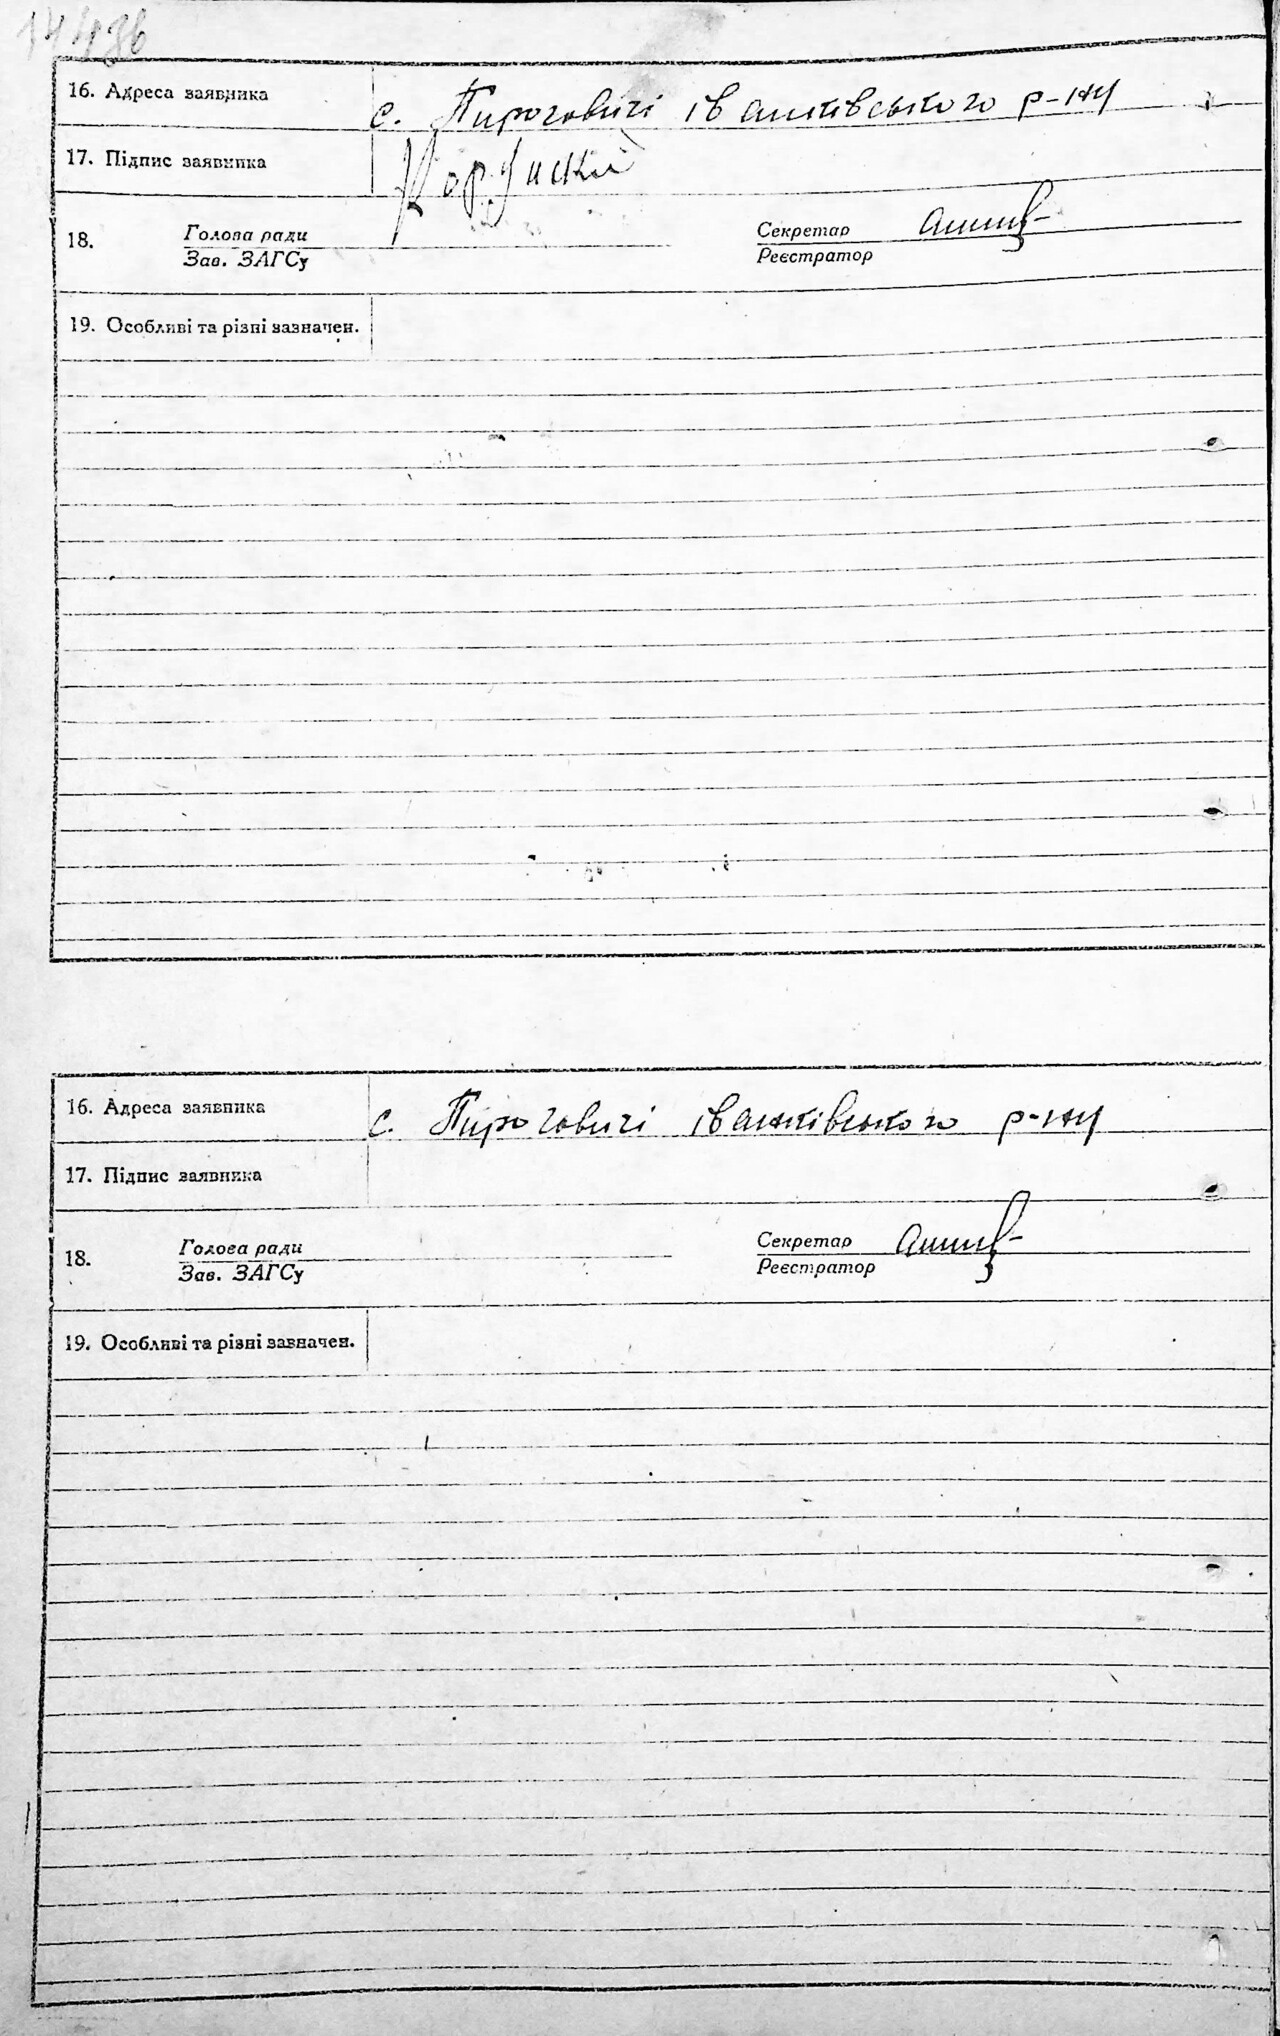 16. Адреса заявника с. Пироговичі іванківського р-ну
17. Підпис заявника
18. Голова ради Секретар
Зав. ЗАГСу Реєстратор
19. Особливі та різні зазначен.
16. Адреса заявника с. Пироговичі іванківського р-ну
17. Підпис заявника
18. Голова ради Секретар
Зав. ЗАГСу Реєстратор
19. Особливі та різні зазначен.